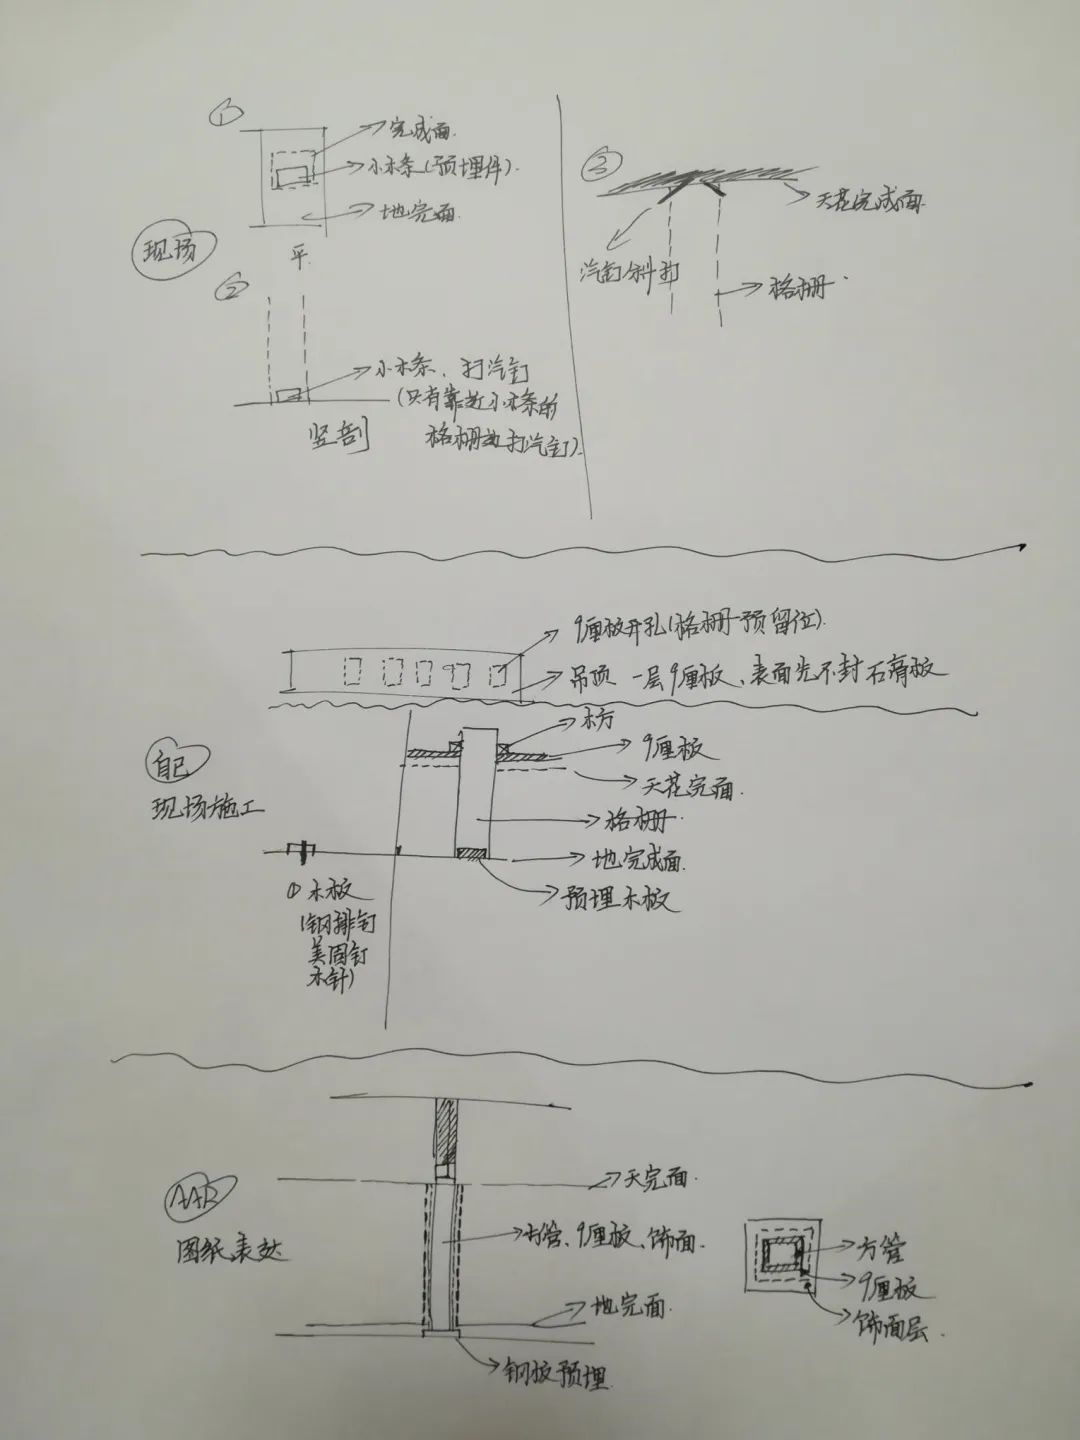 ①
完成面.
小木条(预埋件).
地完面.
平.
现场
②
小木条、打汽钉
(只有靠近小木条的
格栅边打汽钉).
竖剖
③
天花完成面.
汽钉斜打
格栅.
9厘板开孔(格栅预留位).
吊顶 一层9厘板、表面先不封石膏板
自己
现场施工
木方
9厘板
天花完面.
格栅.
地完成面.
预埋木板
① 木板
(钢排钉
美固钉
木针)
图纸表达
天完面.
方管、9厘板、饰面.
地完面.
钢板预埋.
方管
9厘板
饰面层.